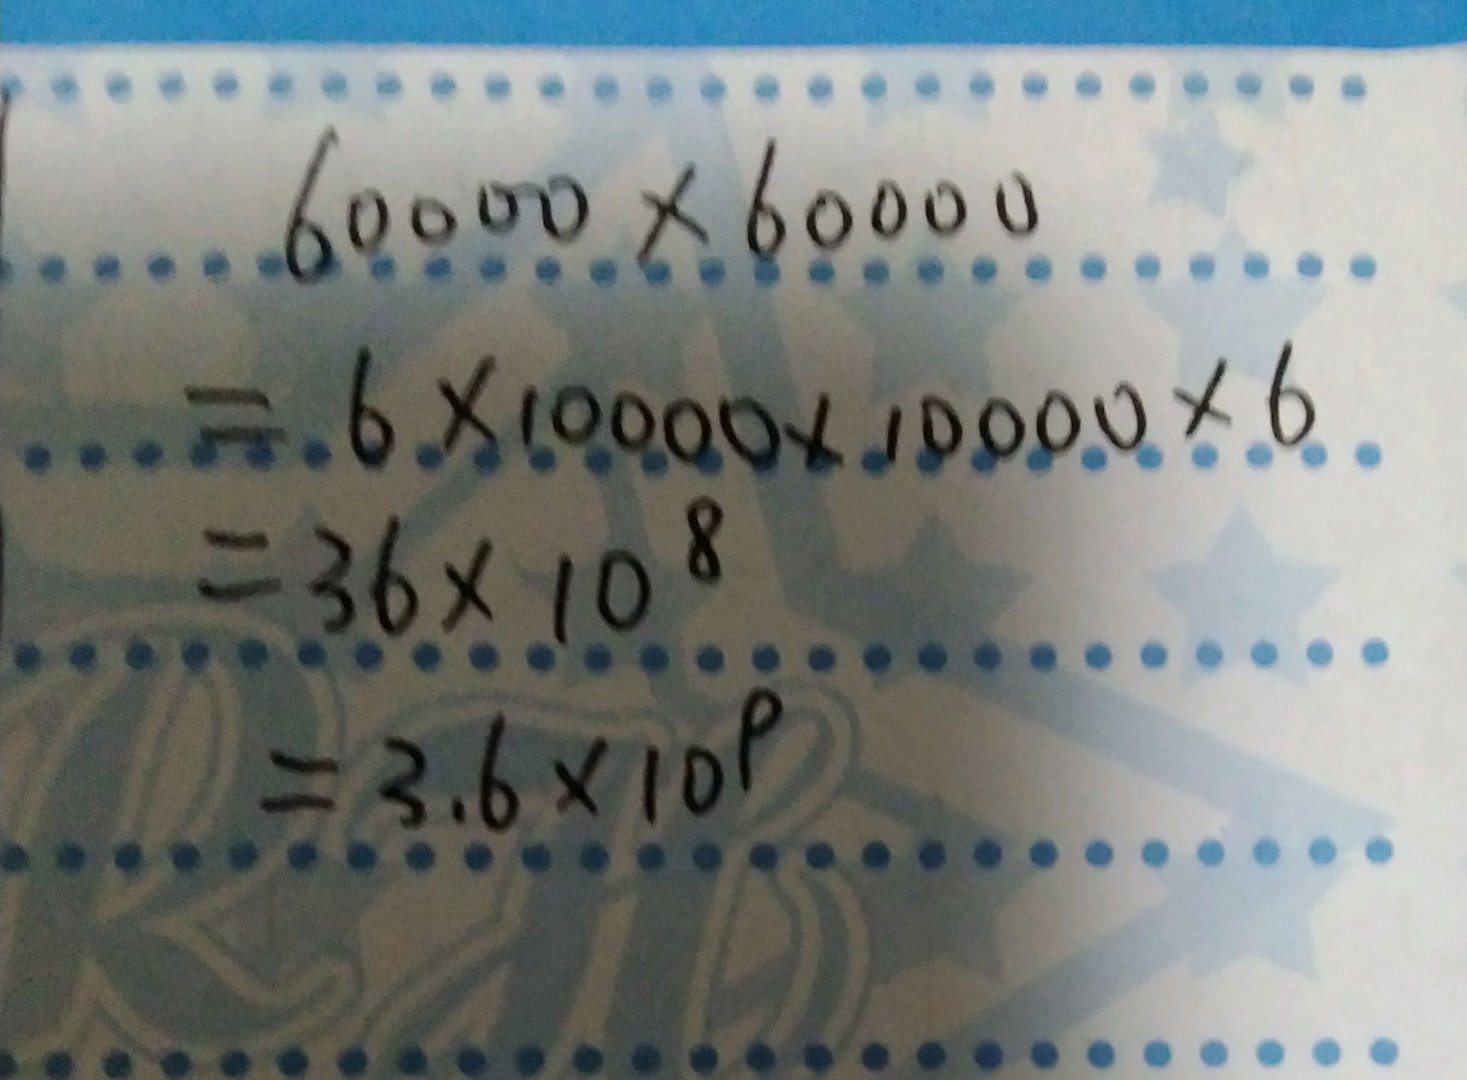 60000×60000
=6×10000×10000×6
=36×10⁸
=3.6×10⁹